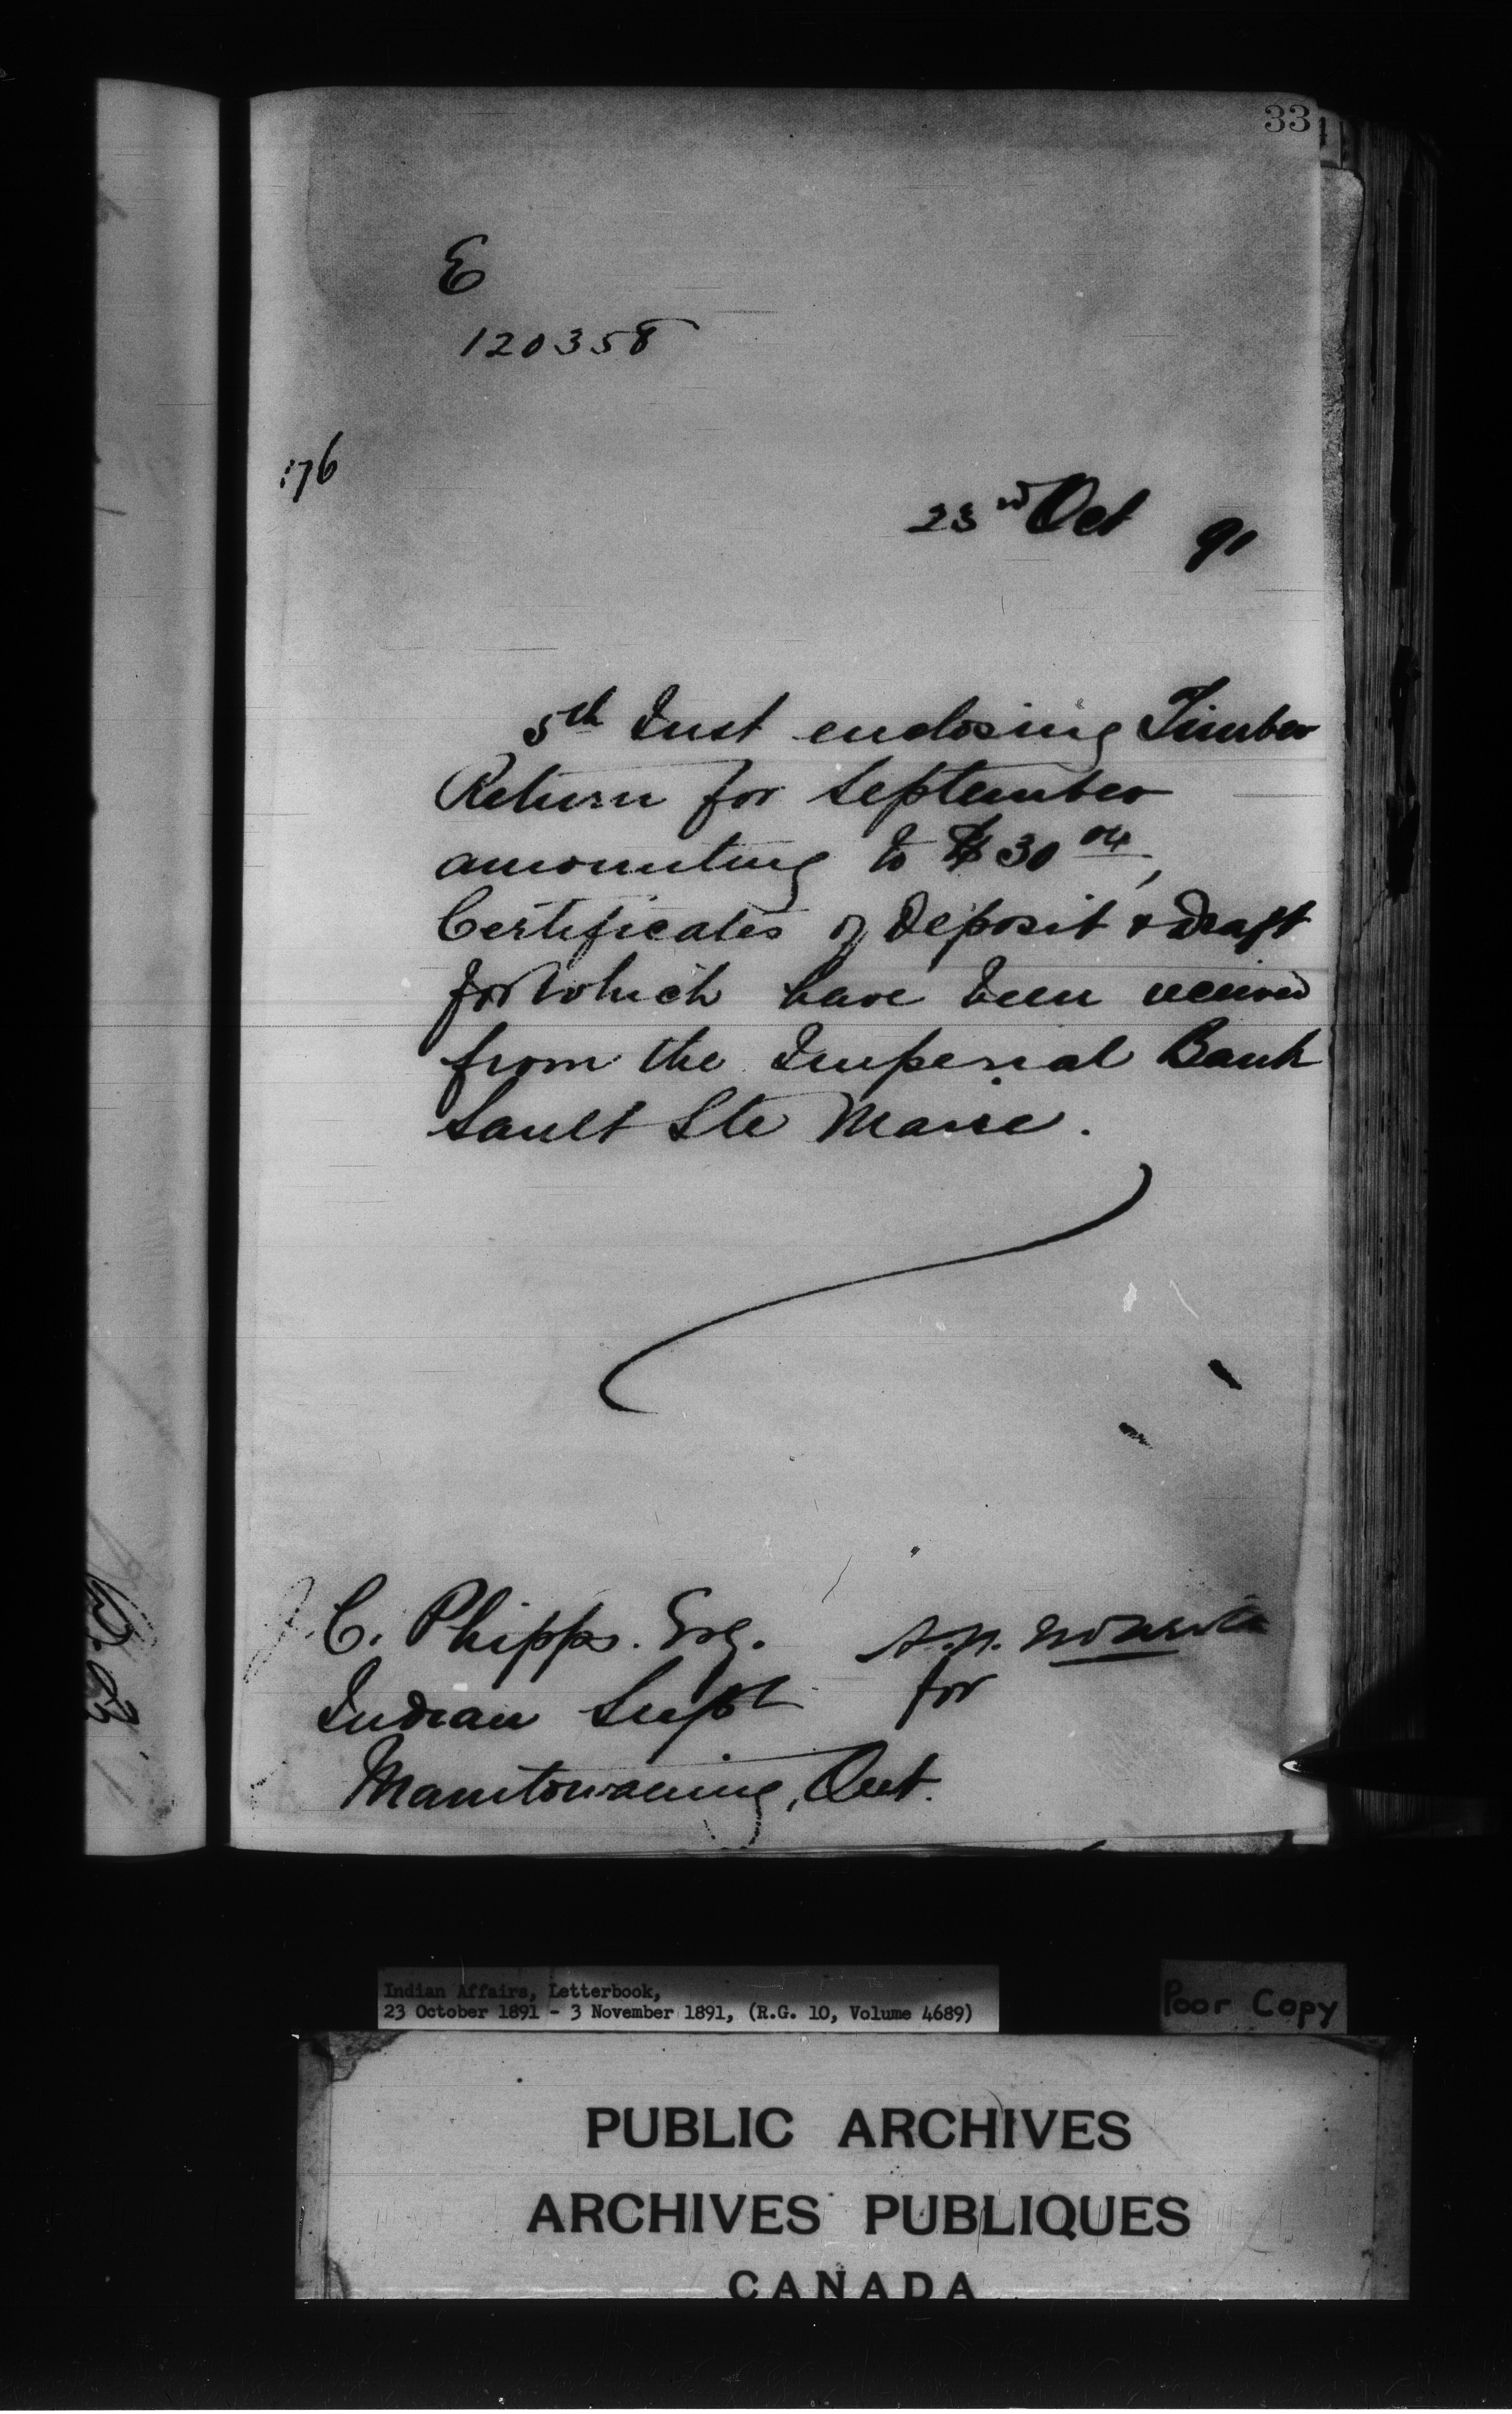 33
E
120358
176
23rd Oct 91
5th Inst enclosing Timber
Return for September
amounting to $30 04,
Certificates of Deposit & Draft
for which have been received
from the Imperial Bank
Sault Ste Marie.
J. C. Phipps. Esq.
for
Indian Supt
Manitowaning, Ont.
Indian Affairs, Letterbook,
23 October 1891 - 3 November 1891, (R.G. 10, Volume 4689)
Poor Copy
PUBLIC ARCHIVES
ARCHIVES PUBLIQUES
CANADA